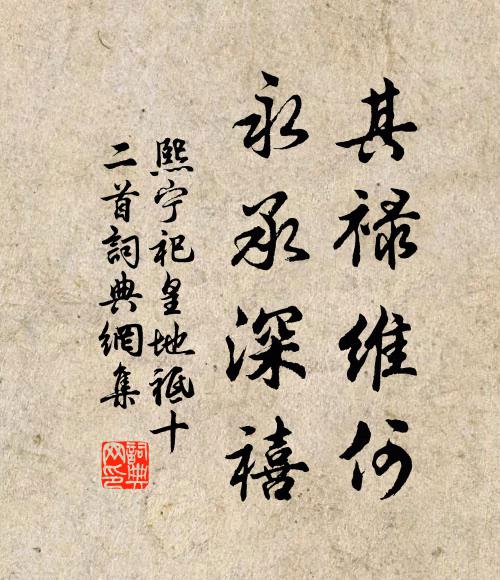 其禄维何
永承深禧
熙宁祀皇地祇十
二首詞典網集
詞典
网印